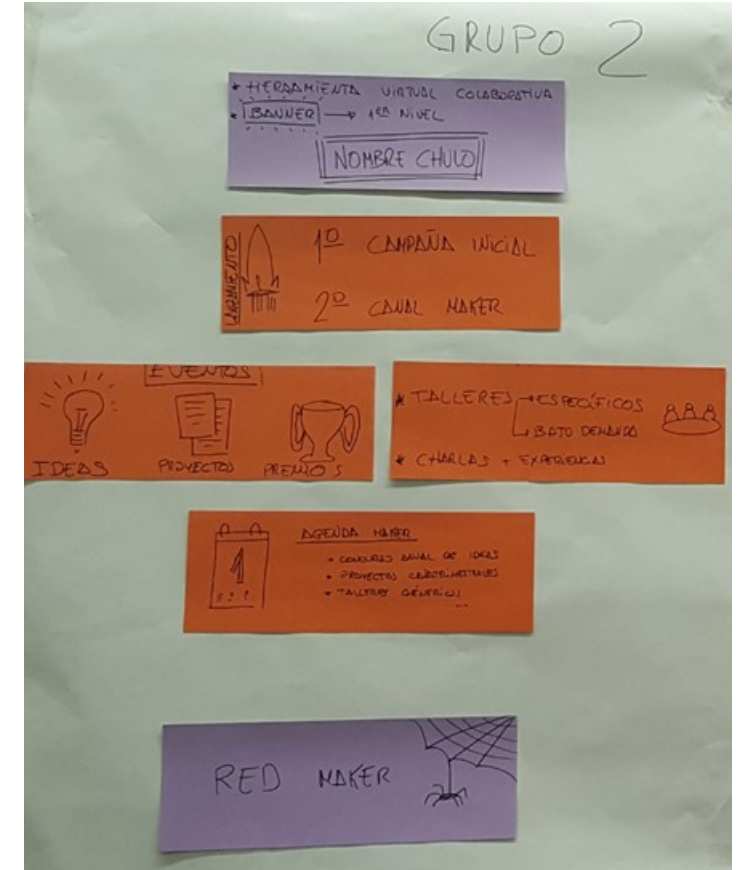 GRUPO 2
* HERRAMIENTA VIRTUAL COLABORATIVA
* BANNER → 1ER NIVEL
NOMBRE CHULO
LANZAMIENTO
1º CAMPAÑA INICIAL
2º CANAL MAKER
EVENTOS
IDEAS PROYECTOS PREMIOS
* TALLERES → ESPECÍFICOS
→ BAJO DEMANDA
* CHARLAS + EXPERIENCIAS
1
AGENDA MAKER
• CONCURSO ANUAL DE IDEAS
• PROYECTOS CUATRIMESTRALES
• TALLERES GENÉRICOS
...
RED MAKER